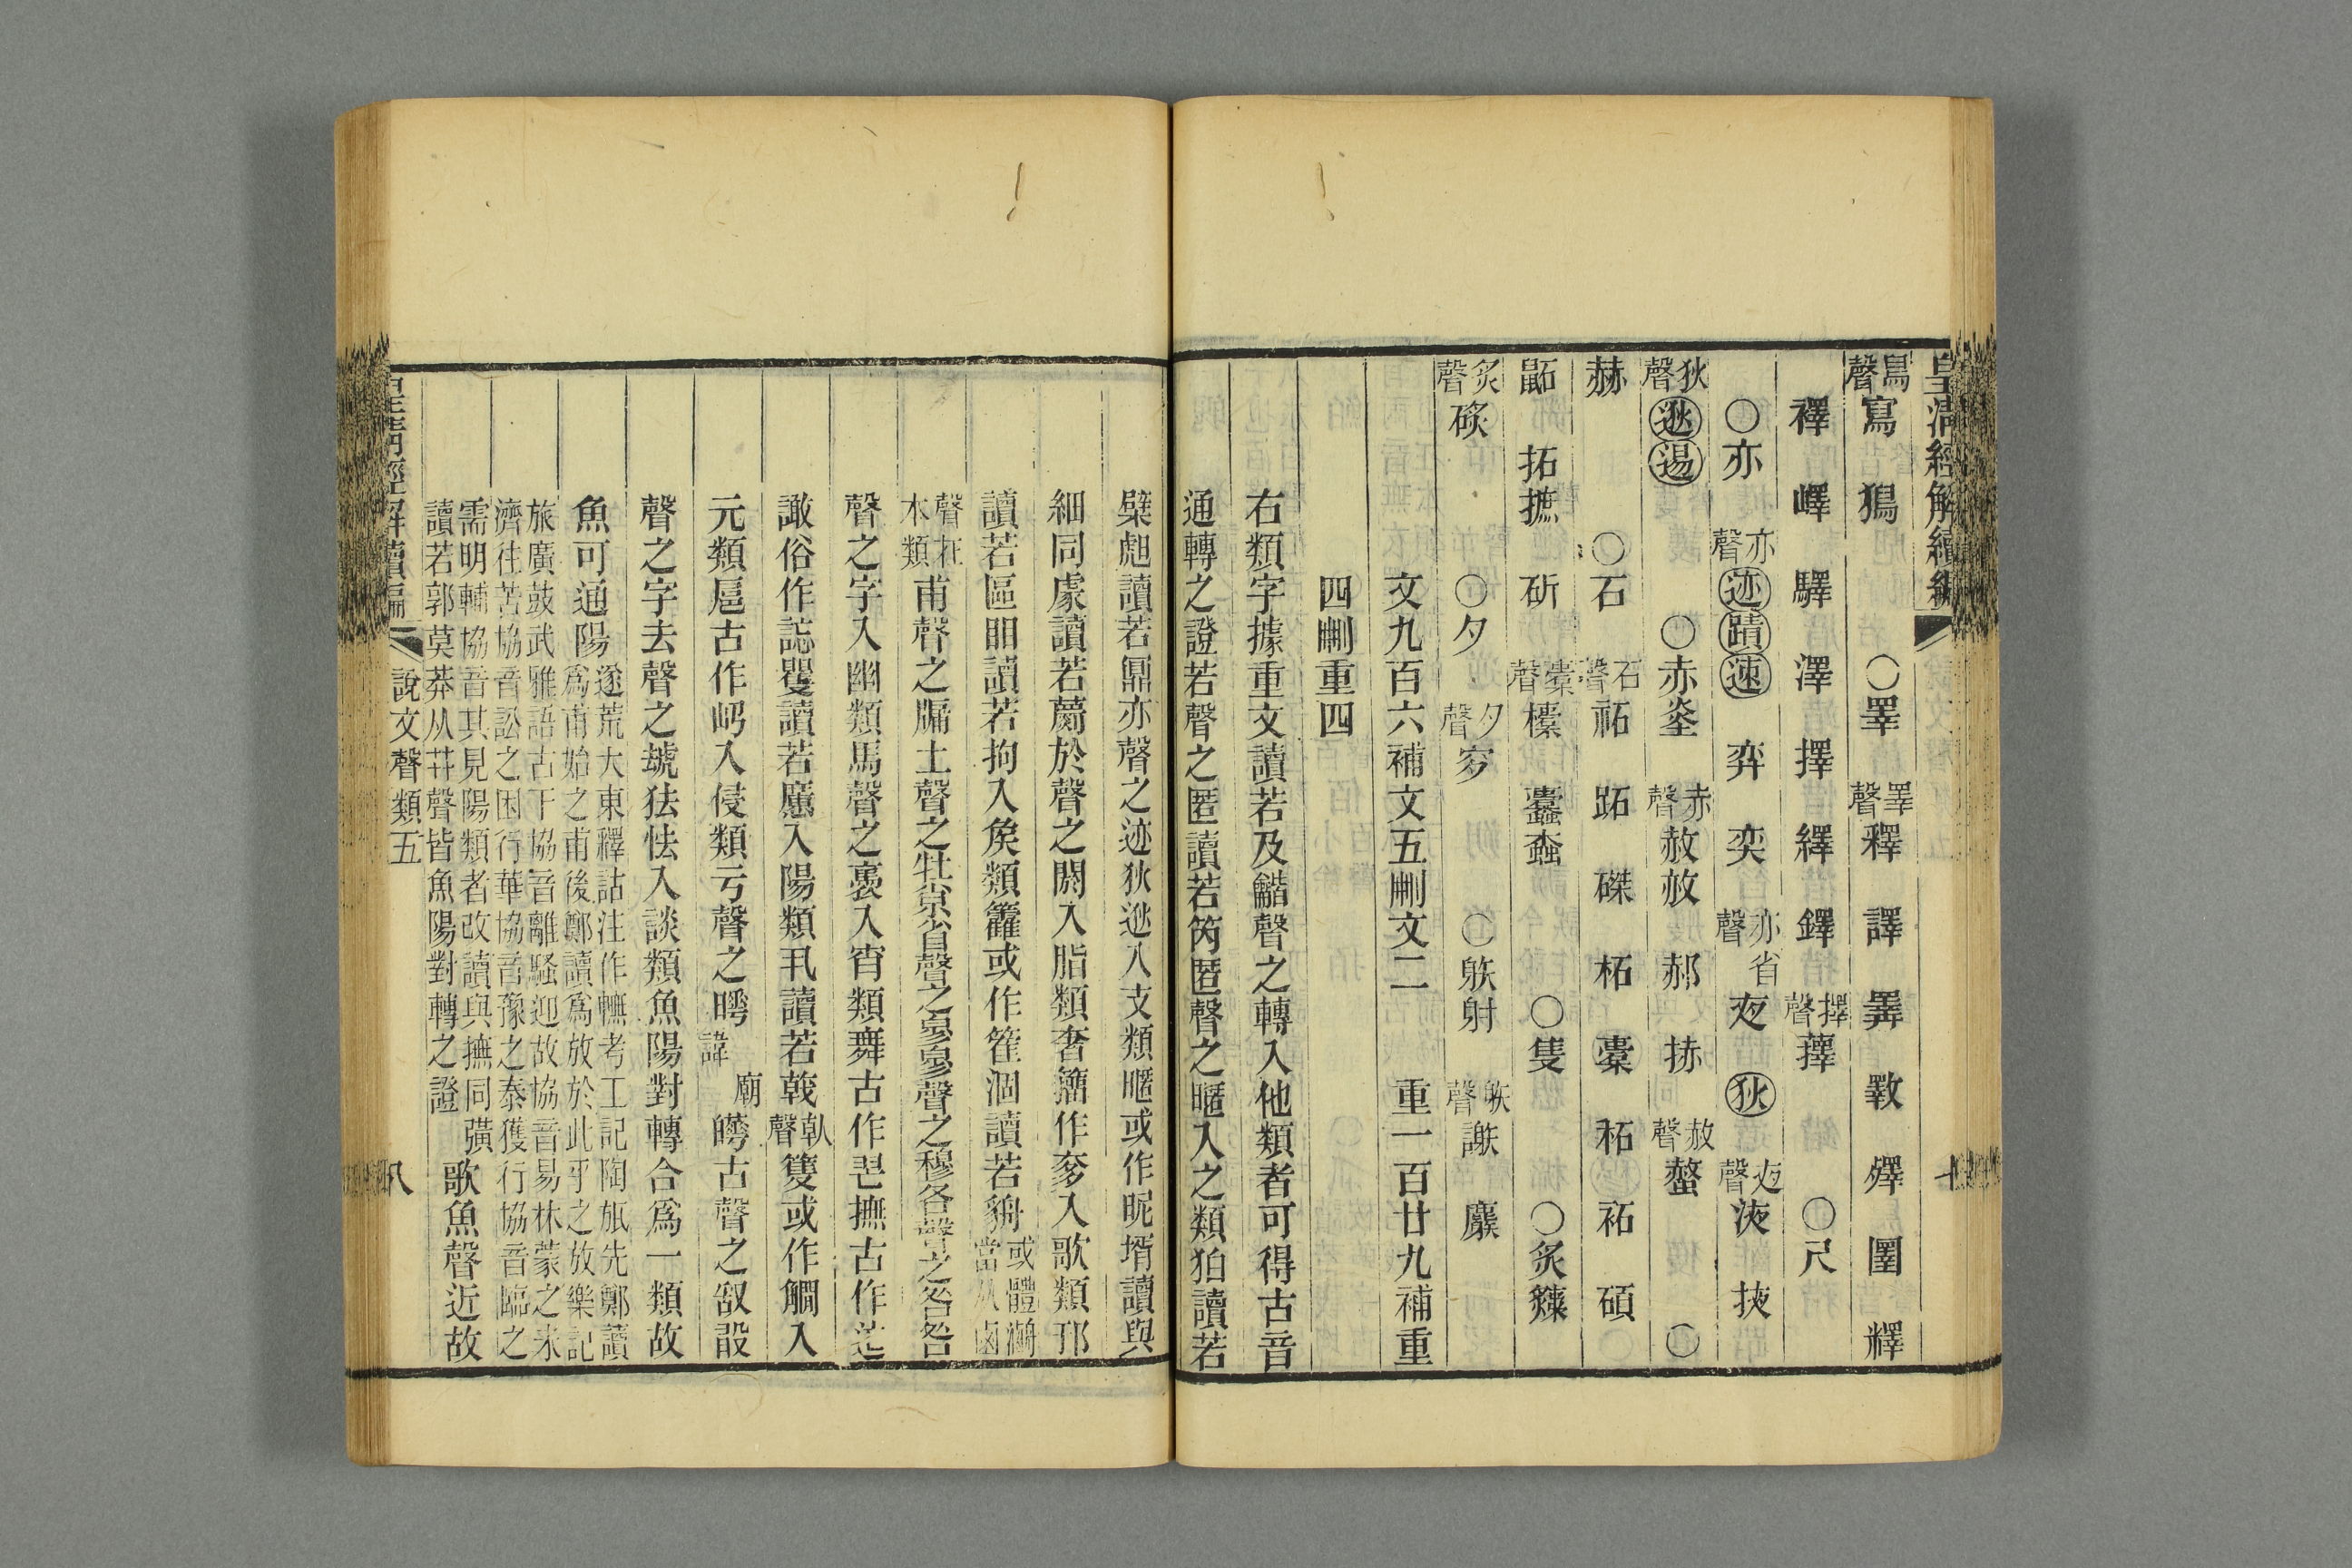 皇清經解續編
舄聲 寫 䲭 ○睪 睪聲 釋 譯 斁 殬 圛 繹
襗 嶧 驛 澤 擇 繹 鐸 擇聲 蘀 ○尺
○亦 亦聲 迹 蹟 速 弈 奕 亦省聲 夜 狄 夜聲 液 掖
狄聲 逖 逷 ○赤 烾 赤聲 赦 㪧 郝 捇 赦聲 螫 ○
赫 ○石 石聲 祏 跖 磔 柘 橐 䄷 袥 碩
鼫 拓 摭 斫 橐聲 㯱 蠹 螙 ○隻 ○炙 𤌗
炙聲 䂩 ○夕 夕聲 穸 ○䠶 射 䠶聲 謝 麝
文九百六補文五刪文二 重一百廿九補重
四刪重四
右類字據重文讀若及龤聲之轉入他類者可得古音
通轉之證若聲之匿讀若䇣匿聲之暱入之類狛讀若
檗䖒讀若鼏亦聲之迹狄逖入支類暱或作昵壻讀與
細同䖒讀若蘮於聲之閼入脂類奢籀作奓入歌類邘
讀若區䀠讀若拘入矦類籱或作篧涸讀若貈 或體灂當从鹵
聲在本類 甫聲之牖土聲之牡京省聲之㣎㣎聲之穆各聲之咎咎
聲之字入幽類馬聲之褭入宵類舞古作𦏶撫古作
譀俗作䛞矍讀若𢥠入陽類丮讀若戟 倝聲 籆或作觼入
元類扈古作㞦入侵類亏聲之𥄳 諱 廟 古聲之㪉設
聲之字去聲之虢㹤怯入談類魚陽對轉合爲一類故
魚可通陽 遂荒大東釋詁注作幠考工記陶瓬先鄭讀爲甫始之甫後鄭讀爲放於此乎之放樂記
旅廣鼓武雅語古下協音離騷迎故協音易林蒙之來濟往苦協音訟之困行華協音豫之泰獲行協音臨之
需明輔協音其見陽類者改讀與撫同彉讀若郭莫莽从茻聲皆魚陽對轉之證 歌魚聲近故
皇淸經解續編 說文聲類五 八